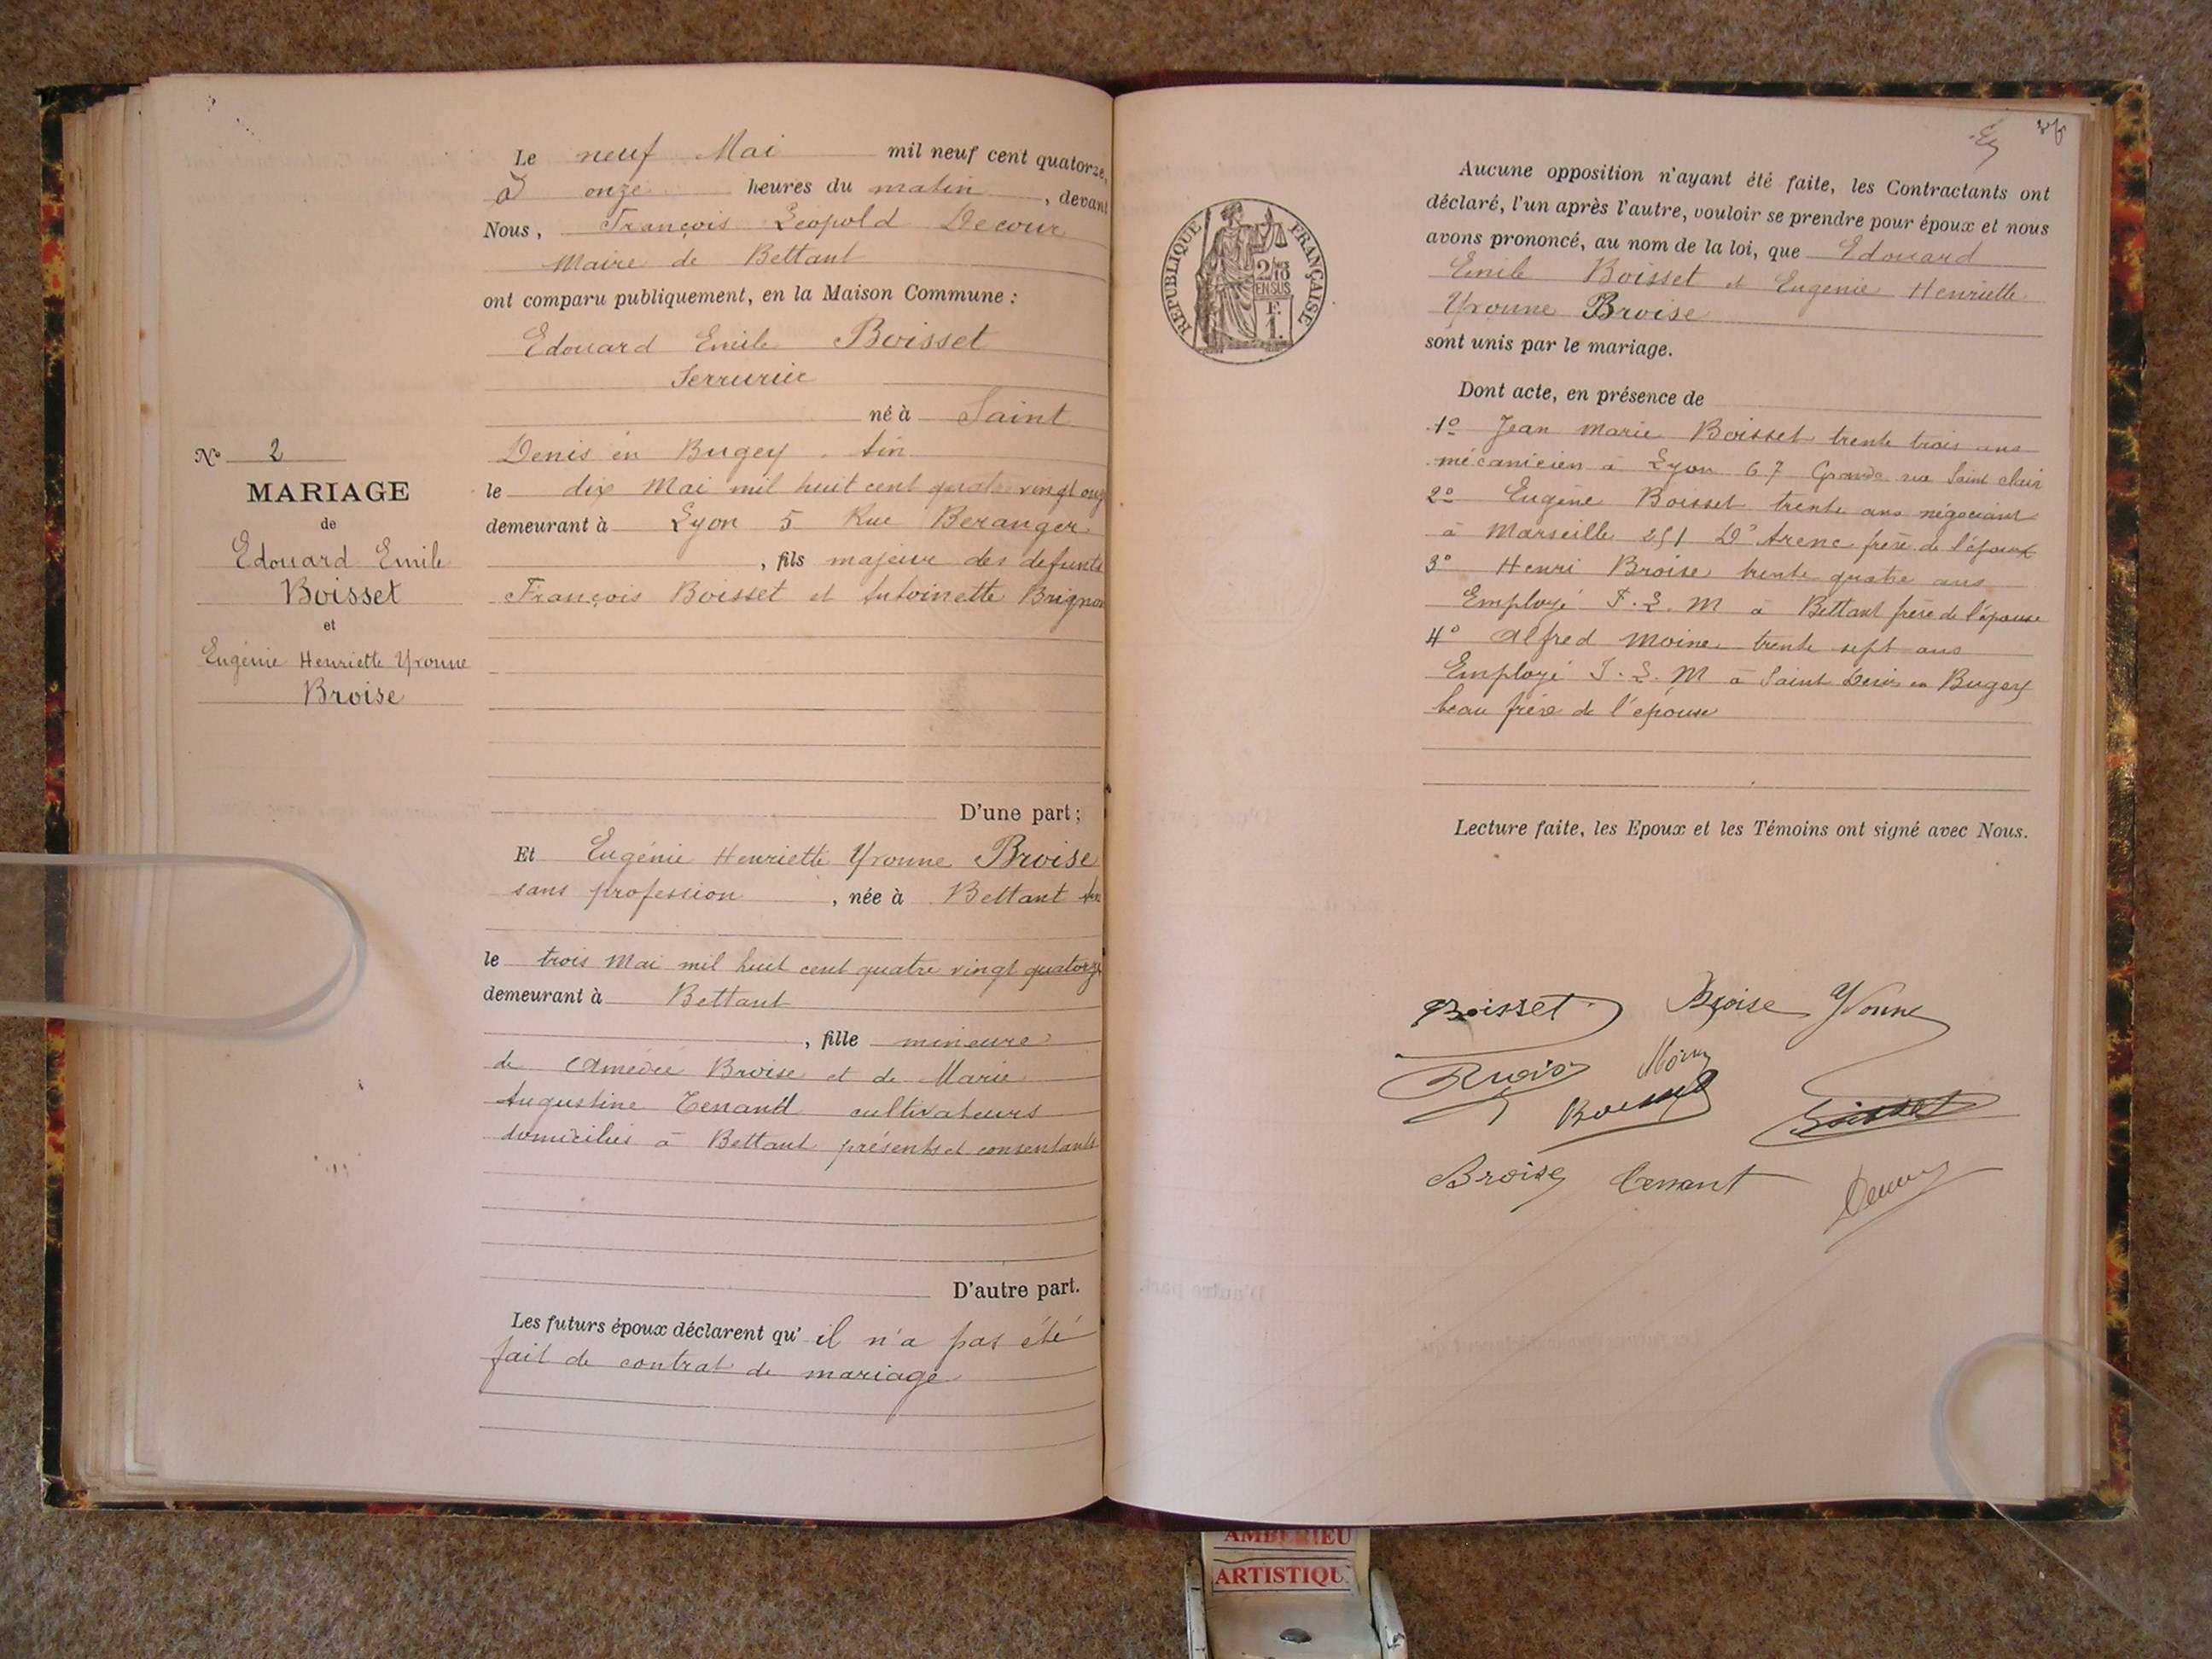 Le neuf Mai mil neuf cent quatorze,
à onze heures du matin, devant
Nous, François Leopold Decour
Maire de Bettant
ont comparu publiquement, en la Maison Commune :
Edouard Emile Boisset
Serrurier
né à Saint
Denis en Bugey. Ain
le dix Mai mil huit cent quatre vingt onze
demeurant à Lyon 5 Rue Beranger
, fils majeur des defunts
François Boisset et Antoinette Brignon
D'une part ;
Et Eugénie Henriette Yvonne Broise
sans profession, née à Bettant Ain
le trois Mai mil huit cent quatre vingt quatorze
demeurant à Bettant
, fille mineure
de Amédée Broise et de Marie
Augustine Tenand cultivateurs
domiciliés à Bettant présents et consentants
D'autre part.
Les futurs époux déclarent qu' il n'a pas été
fait de contrat de mariage
N° 2
MARIAGE
de
Edouard Emile
Boisset
et
Eugénie Henriette Yvonne
Broise
REPUBLIQUE FRANÇAISE
2/10
EN SUS
F.
1.
Aucune opposition n'ayant été faite, les Contractants ont
déclaré, l'un après l'autre, vouloir se prendre pour époux et nous
avons prononcé, au nom de la loi, que Edouard
Emile Boisset et Eugenie Henriette
Yvonne Broise
sont unis par le mariage.
Dont acte, en présence de
1° Jean Marie Boisset trente trois ans
mécanicien à Lyon 67 Grande rue Saint Clair
2° Eugène Boisset trente ans négociant
à Marseille 251 Arenc frère de l'époux
3° Henri Broise trente quatre ans
Employé P. L. M à Bettant frère de l'épouse
4° Alfred Moine trente sept ans
Employé P. L. M à Saint Denis en Bugey
beau frère de l'épouse
Lecture faite, les Epoux et les Témoins ont signé avec Nous.
Boisset Broise Yvonne
Broise Moine
Boisset Boisset
Broise Tenant Decour
AMBERIEU
ARTISTIQU